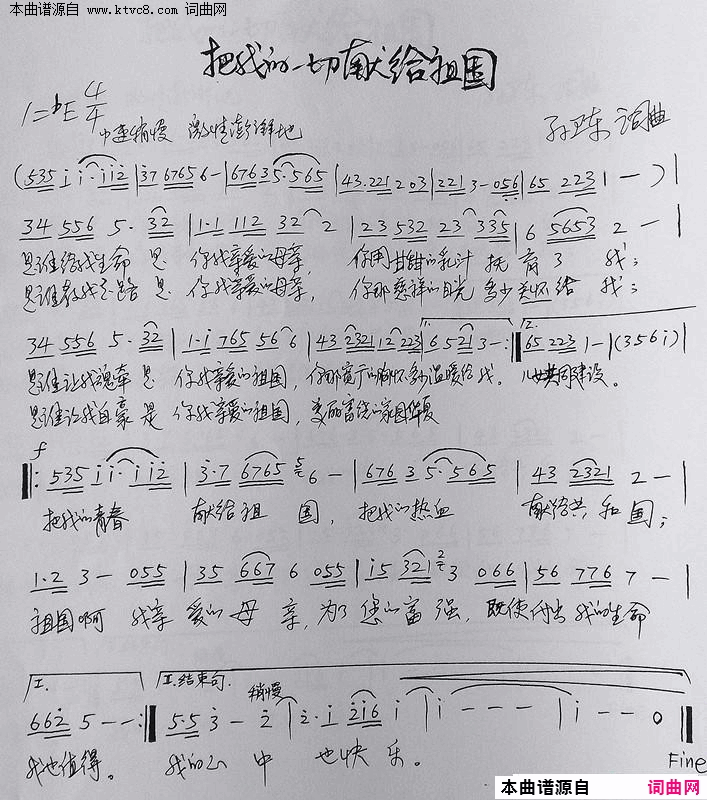 本曲谱源自 www.ktvc8.com 词曲网
把我的一切献给祖国
1=♭E 4/4
中速稍慢 激情澎湃地
孙卫东 词曲
(535 i i·i i i2 | 37 6765 6 - | 676 3 5·565 | 43·221 2 03 | 221 3 - 056 | 65 223 | 1 - ) |
34 556 5· 32 | 1·1 112 32 2 | 23 532 23 335 | 6 5653 2 - |
是谁给我生命 是 你我亲爱的母亲, 你用甘甜的乳汁 抚育了 我;
是谁教我走路 是 你我亲爱的母亲, 你那慈祥的目光 多少关怀给 我;
34 556 5· 32 | 1·i 765 56 6 | 43 2321 12 223 | 1. 6 521 3 - :| 2. 65 223 1 - | (356i) |
是谁让我魂牵 是 你我亲爱的祖国, 你那宽广的胸怀多少温暖给我。 儿女共同建设。
是谁让我自豪 是 你我亲爱的祖国, 美丽富饶的家园华夏
f
|: 535 i i·i i i2 | 3·7 6765 5 6 - | 676 3 5·565 | 43 2321 2 - |
把我的青春 献给祖 国, 把我的热血 献给共和国;
1·2 3 - 055 | 35 667 6 055 | i5 321 2 3 066 | 56 776 7 - |
祖国啊 我亲 爱的母 亲, 为了 您的富 强, 既使付出 我的生命
I. II.结束句. 稍慢
662 5 - - :| 5·5 3 - 2 | 2·i 2i6 i | i - - - | i - - 0 |
我也值得。 我的心 中 也快 乐。
Fine
本曲谱源自 词曲网